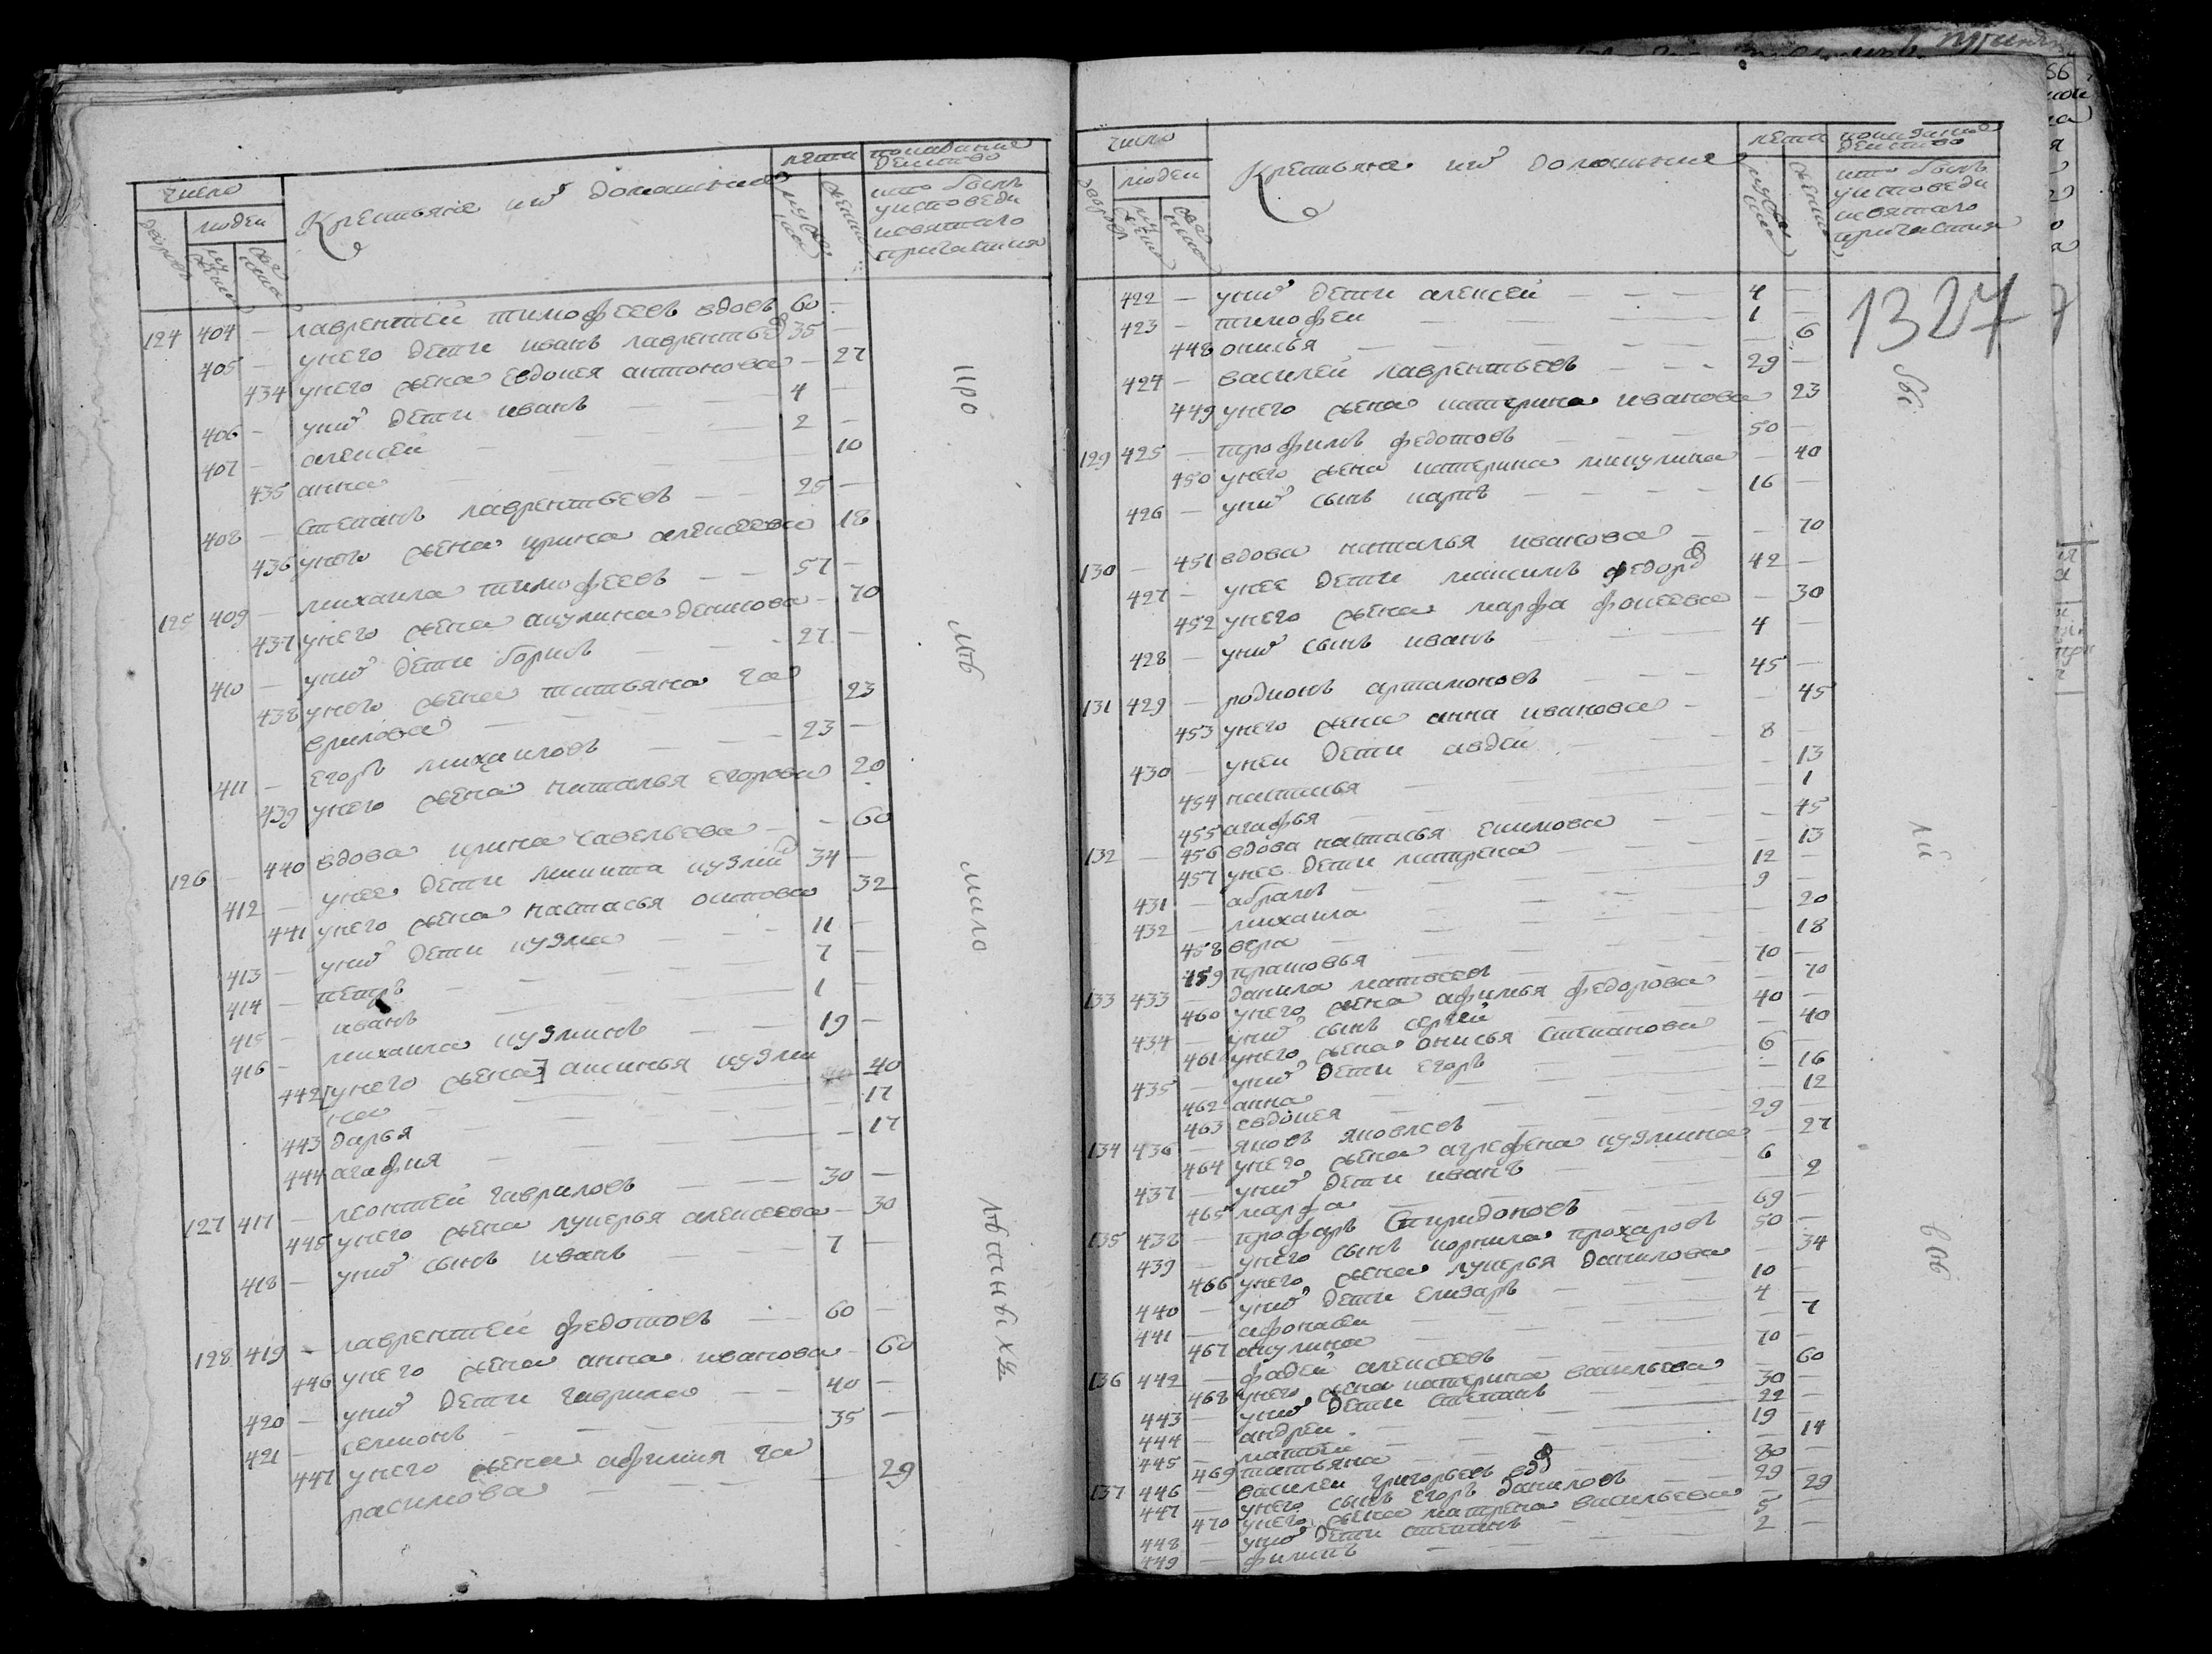 число
людеи
дворовъ
мужеска
женска
Крестьяне ихъ домашние
лета
мужеска
женска
показание
деиства
кто былъ
уисповеди
исвятаго
причастия
124 404 — лаврентеи тимофеевъ вдовъ 60 —
405 — унего дети иванъ лаврентьев 35 —
434 унего жена евдокея антонова — 27
406 — унихъ дети иванъ — 4 —
407 — алексеи — 2 —
435 анна — 10
408 — степанъ лаврентьевъ — — 25 —
436 унего жена ирина алексеева 18
125 409 — михаила тимофеевъ — — 57 —
437 унего жена акулина денисова — 70
410 — унихъ дети борисъ — — 27 —
438 унего жена татьяна га
врилова — — 23
411 — егоръ михаиловъ — — 23 —
439 унего жена наталья егорова 20
126 — 440 вдова ирина савельева — — 60
412 — унее дети никита кузмин 34 —
441 унего жена настасья осипова 32
413 — унихъ дети кузма — — 11 —
414 — петръ — — 7 —
415 — иванъ — 1 —
416 — михаила кузминъ — — 19 —
442 [унего жена] аксинья кузми 40
на — — 17
443 дарья — — 17
444 агафия —
127 417 — леонтеи гавриловъ — — 30 —
445 унего жена лукерья алексеева — 30
418 — унихъ сынъ иванъ — 7 —
128 419 — лаврентеи федотовъ — — 60 —
446 унего жена анна иванова — 60
420 — унихъ дети гаврила — — 40 —
421 — семионъ — — 35 —
447 унего жена афимия га
расимова — — 29
про
мъ
мило
лъвинныхъ
число
людеи
дворовъ
мужеска
женска
Крестьяне ихъ домашние
лета
мужеска
женска
показание
деиства
кто былъ
уисповеди
исвятаго
причастия
1327
422 — унихъ дети алексеи — — — 4 —
423 — тимофеи — — 1 —
448 онисья — — — 6
424 — василеи лаврентьевъ — — — 29 —
449 унего жена катерина иванова 23
129 425 — трофимъ федотовъ — — — 50 —
450 унего жена катерина микулина — 40
426 — унихъ сынъ карпъ — — — — 16 —
130 — 451 вдова наталья иванова — — 70
427 — унее дети максимъ федоров 42 —
452 унего жена марфа фокеева — 30
428 — унихъ сынъ иванъ — — 4 —
131 429 — родионъ артамоновъ — — — 45 —
453 унего жена анна иванова — — 45
430 — унеи дети авдеи — — — 8 —
454 настасья — — — 13
455 агафья — — — 1
132 — 456 вдова настасья екимова — — 45
457 унее дети матрена — — — 13
431 — абрамъ — — — 12 —
432 — михаила — — — 9 —
458 вера — — — 20
459 прасковья — — — 18
133 433 — данила матвеевъ — — — 70 —
460 унего жена афимья федорова — 70
434 — унихъ сынъ сергеи — — 40 —
461 унего жена онисья степанова — 40
435 — унихъ дети егоръ — — 6 —
462 анна — — — 16
463 евдокея — — — 12
134 436 — яковъ яковлевъ — — — 29 —
464 унего жена агрефена кузмина — 27
437 — унихъ дети иванъ — — 6 —
465 марфа — — — 2
135 438 — прохаръ спиридоновъ — — 69 —
439 — унего сынъ корнила прохаровъ 50 —
466 унего жена лукерья данилова — 34
440 — унихъ дети елизаръ — 10 —
441 — афонасеи — — 4 —
467 акулина — — — 7
136 442 — фадеи алексеевъ — — 70 —
468 унего жена катерина васильева — 60
443 — унихъ дети степанъ — 30 —
444 — андреи — — 22 —
445 — матвеи — — 19 —
469 татьяна — — — 14
137 446 — василеи григорьевъ вдов — 80 —
447 — унего сынъ егоръ даниловъ — 29 —
470 унего жена матрена васильева — 29
448 — унихъ дети степанъ — 5 —
449 — филипъ — — 2 —
лй